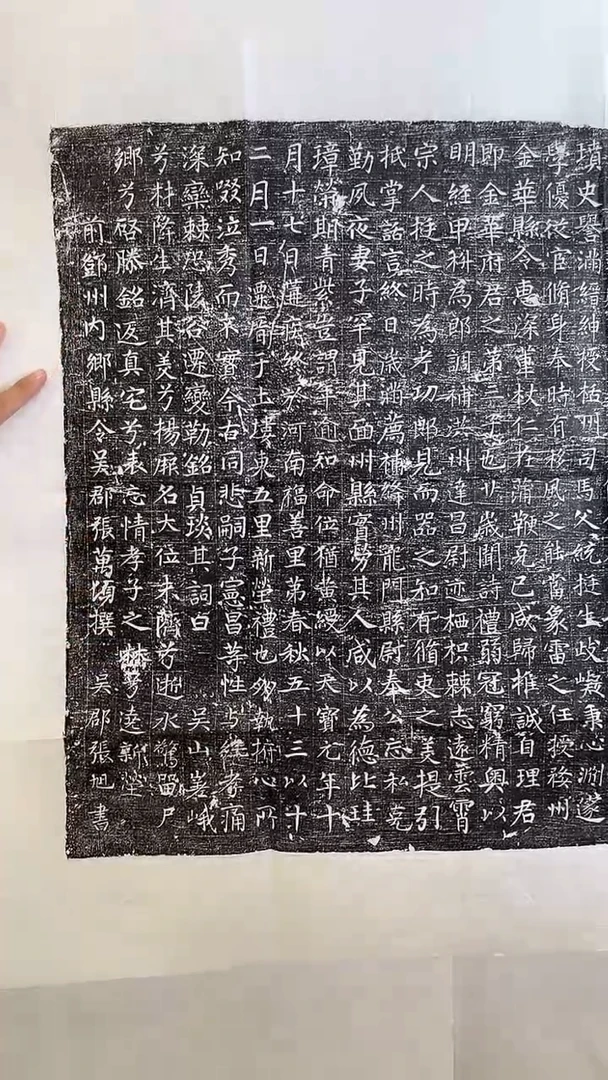 墳史譽滿縉紳授括州司馬父紞挺生歧嶷秉心渊邃
學優從官脩身奉時有移風之能當象雷之任授婺州
金華縣令惠深葦杖仁在蒲鞭克己咸歸推誠自理君
即金華府君之第三子也廿歲聞詩禮弱冠窮精奧以
明經甲科為郎調補洪州建昌尉迹栖枳棘志遠雲霄
宗人挺之時為考功郎見而器之知有脩吏之美提引
抵掌話言終日歲滿薦補絳州龍門縣尉奉公忘私克
勤夙夜妻子罕見其面州縣實勞其人咸以為德比珪
璋榮期青紫豈謂年逾知命位猶黄綬以天寶元年十
月十七日寢疾終於河南福善里第春秋五十三以十
二月一日遷厝于土塿東五里新塋禮也夘孰擗心所
知啜泣秀而不實今古同悲嗣子憲昌等性与純孝痛
深欒棘恐陵谷遷變勒銘貞琰其詞曰 吴山峩峨
兮材降生濟其美兮楊厥名大位未躋兮逝水驚留尸
鄉兮啓滕銘返真宅兮表忘情孝子之兮遶新塋
前鄧州内鄉縣令吴郡張萬頃撰 吴郡張旭書